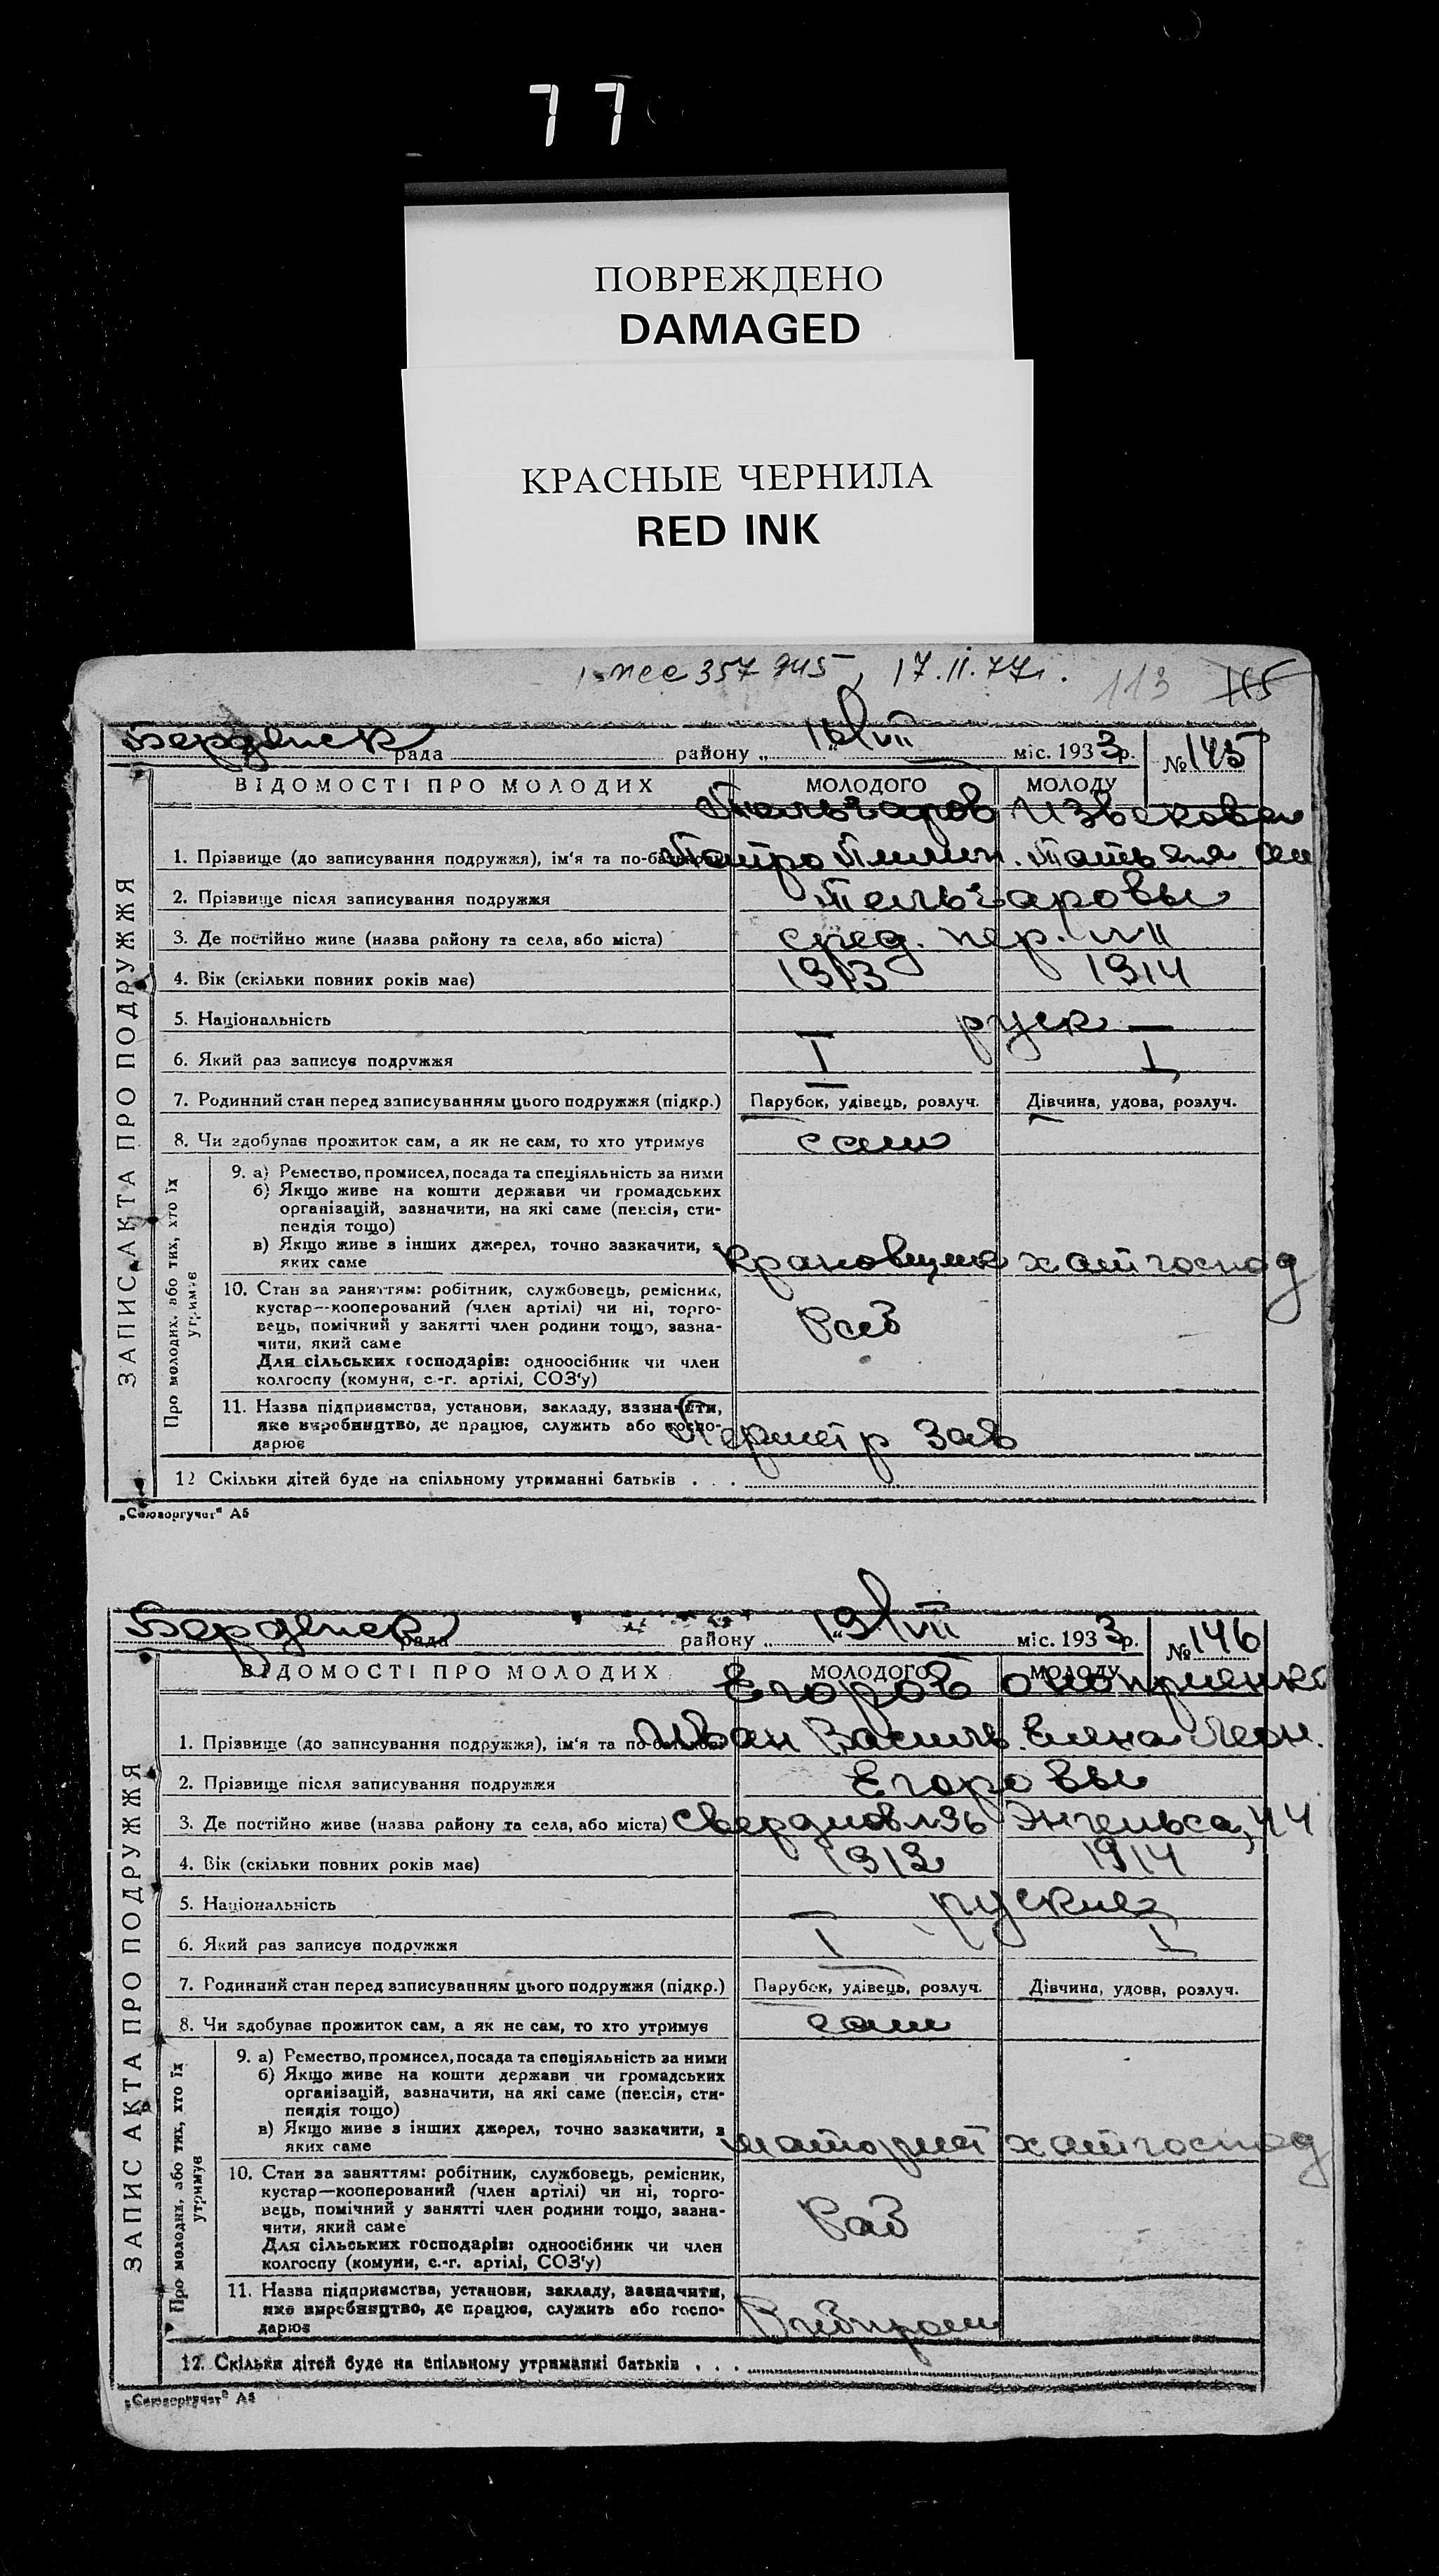 77
ПОВРЕЖДЕНО
DAMAGED
КРАСНЫЕ ЧЕРНИЛА
RED INK
357 945, 17.II.77г. 113 115
Бердянск рада району „ 16/VII міс. 1933 р. № 145
ВІДОМОСТІ ПРО МОЛОДИХ МОЛОДОГО МОЛОДУ
ЗАПИС АКТА ПРО ПОДРУЖЖЯ
Извекова
1. Прізвище (до записування подружжя), ім'я та по-батькові Татьяна
2. Прізвище після записування подружжя
3. Де постійно живе (назва району та села, або міста) сред. пер.
4. Вік (скільки повних років має) 1913 1914
5. Національність руск —
6. Який раз записує подружжя I I
7. Родинний стан перед записуванням цього подружжя (підкр.) Парубок, удівець, розлуч. Дівчина, удова, розлуч.
8. Чи здобуває прожиток сам, а як не сам, то хто утримує сам
Про молодих, або тих, хто їх утримує
9. а) Ремество, промисел, посада та спеціяльність за ними
б) Якщо живе на кошти держави чи громадських
організацій, зазначити, на які саме (пенсія, сти-
пендія тощо)
в) Якщо живе з інших джерел, точно зазначити, з
яких саме крановщик хатгоспод
10. Стан за заняттям: робітник, службовець, ремісник,
кустар—кооперований (член артілі) чи ні, торго-
вець, помічний у занятті член родини тощо, зазна-
чити, який саме Раб
Для сільських господарів: одноосібник чи член
колгоспу (комуни, с.-г. артілі, СОЗ'у)
11. Назва підприємства, установи, закладу, зазначити,
яке виробництво, де працює, служить або госпо-
дарює Зав
12 Скільки дітей буде на спільному утриманні батьків . . .
„Союзоргучот" А5
Бердянск рада району „ 19/VII міс. 1933 р. № 146
ВІДОМОСТІ ПРО МОЛОДИХ МОЛОДОГО МОЛОДУ
ЗАПИС АКТА ПРО ПОДРУЖЖЯ
Егоров Оноприенко
1. Прізвище (до записування подружжя), ім'я та по-батькові Иван Василь. Елена Леон.
2. Прізвище після записування подружжя Егоровы
3. Де постійно живе (назва району та села, або міста) Свердлов 36 Энгельса, 44
4. Вік (скільки повних років має) 1912 1914
5. Національність руские
6. Який раз записує подружжя I I
7. Родинний стан перед записуванням цього подружжя (підкр.) Парубок, удівець, розлуч. Дівчина, удова, розлуч.
8. Чи здобуває прожиток сам, а як не сам, то хто утримує сам
Про молодих, або тих, хто їх утримує
9. а) Ремество, промисел, посада та спеціяльність за ними
б) Якщо живе на кошти держави чи громадських
організацій, зазначити, на які саме (пенсія, сти-
пендія тощо)
в) Якщо живе з інших джерел, точно зазначити, з
яких саме моторист хатгоспод
10. Стан за заняттям: робітник, службовець, ремісник,
кустар—кооперований (член артілі) чи ні, торго-
вець, помічний у занятті член родини тощо, зазна-
чити, який саме Раб
Для сільських господарів: одноосібник чи член
колгоспу (комуни, с.-г. артілі, СОЗ'у)
11. Назва підприємства, установи, закладу, зазначити,
яке виробництво, де працює, служить або госпо-
дарює
12. Скільки дітей буде на спільному утриманні батьків . . .
„Союзоргучот" А5